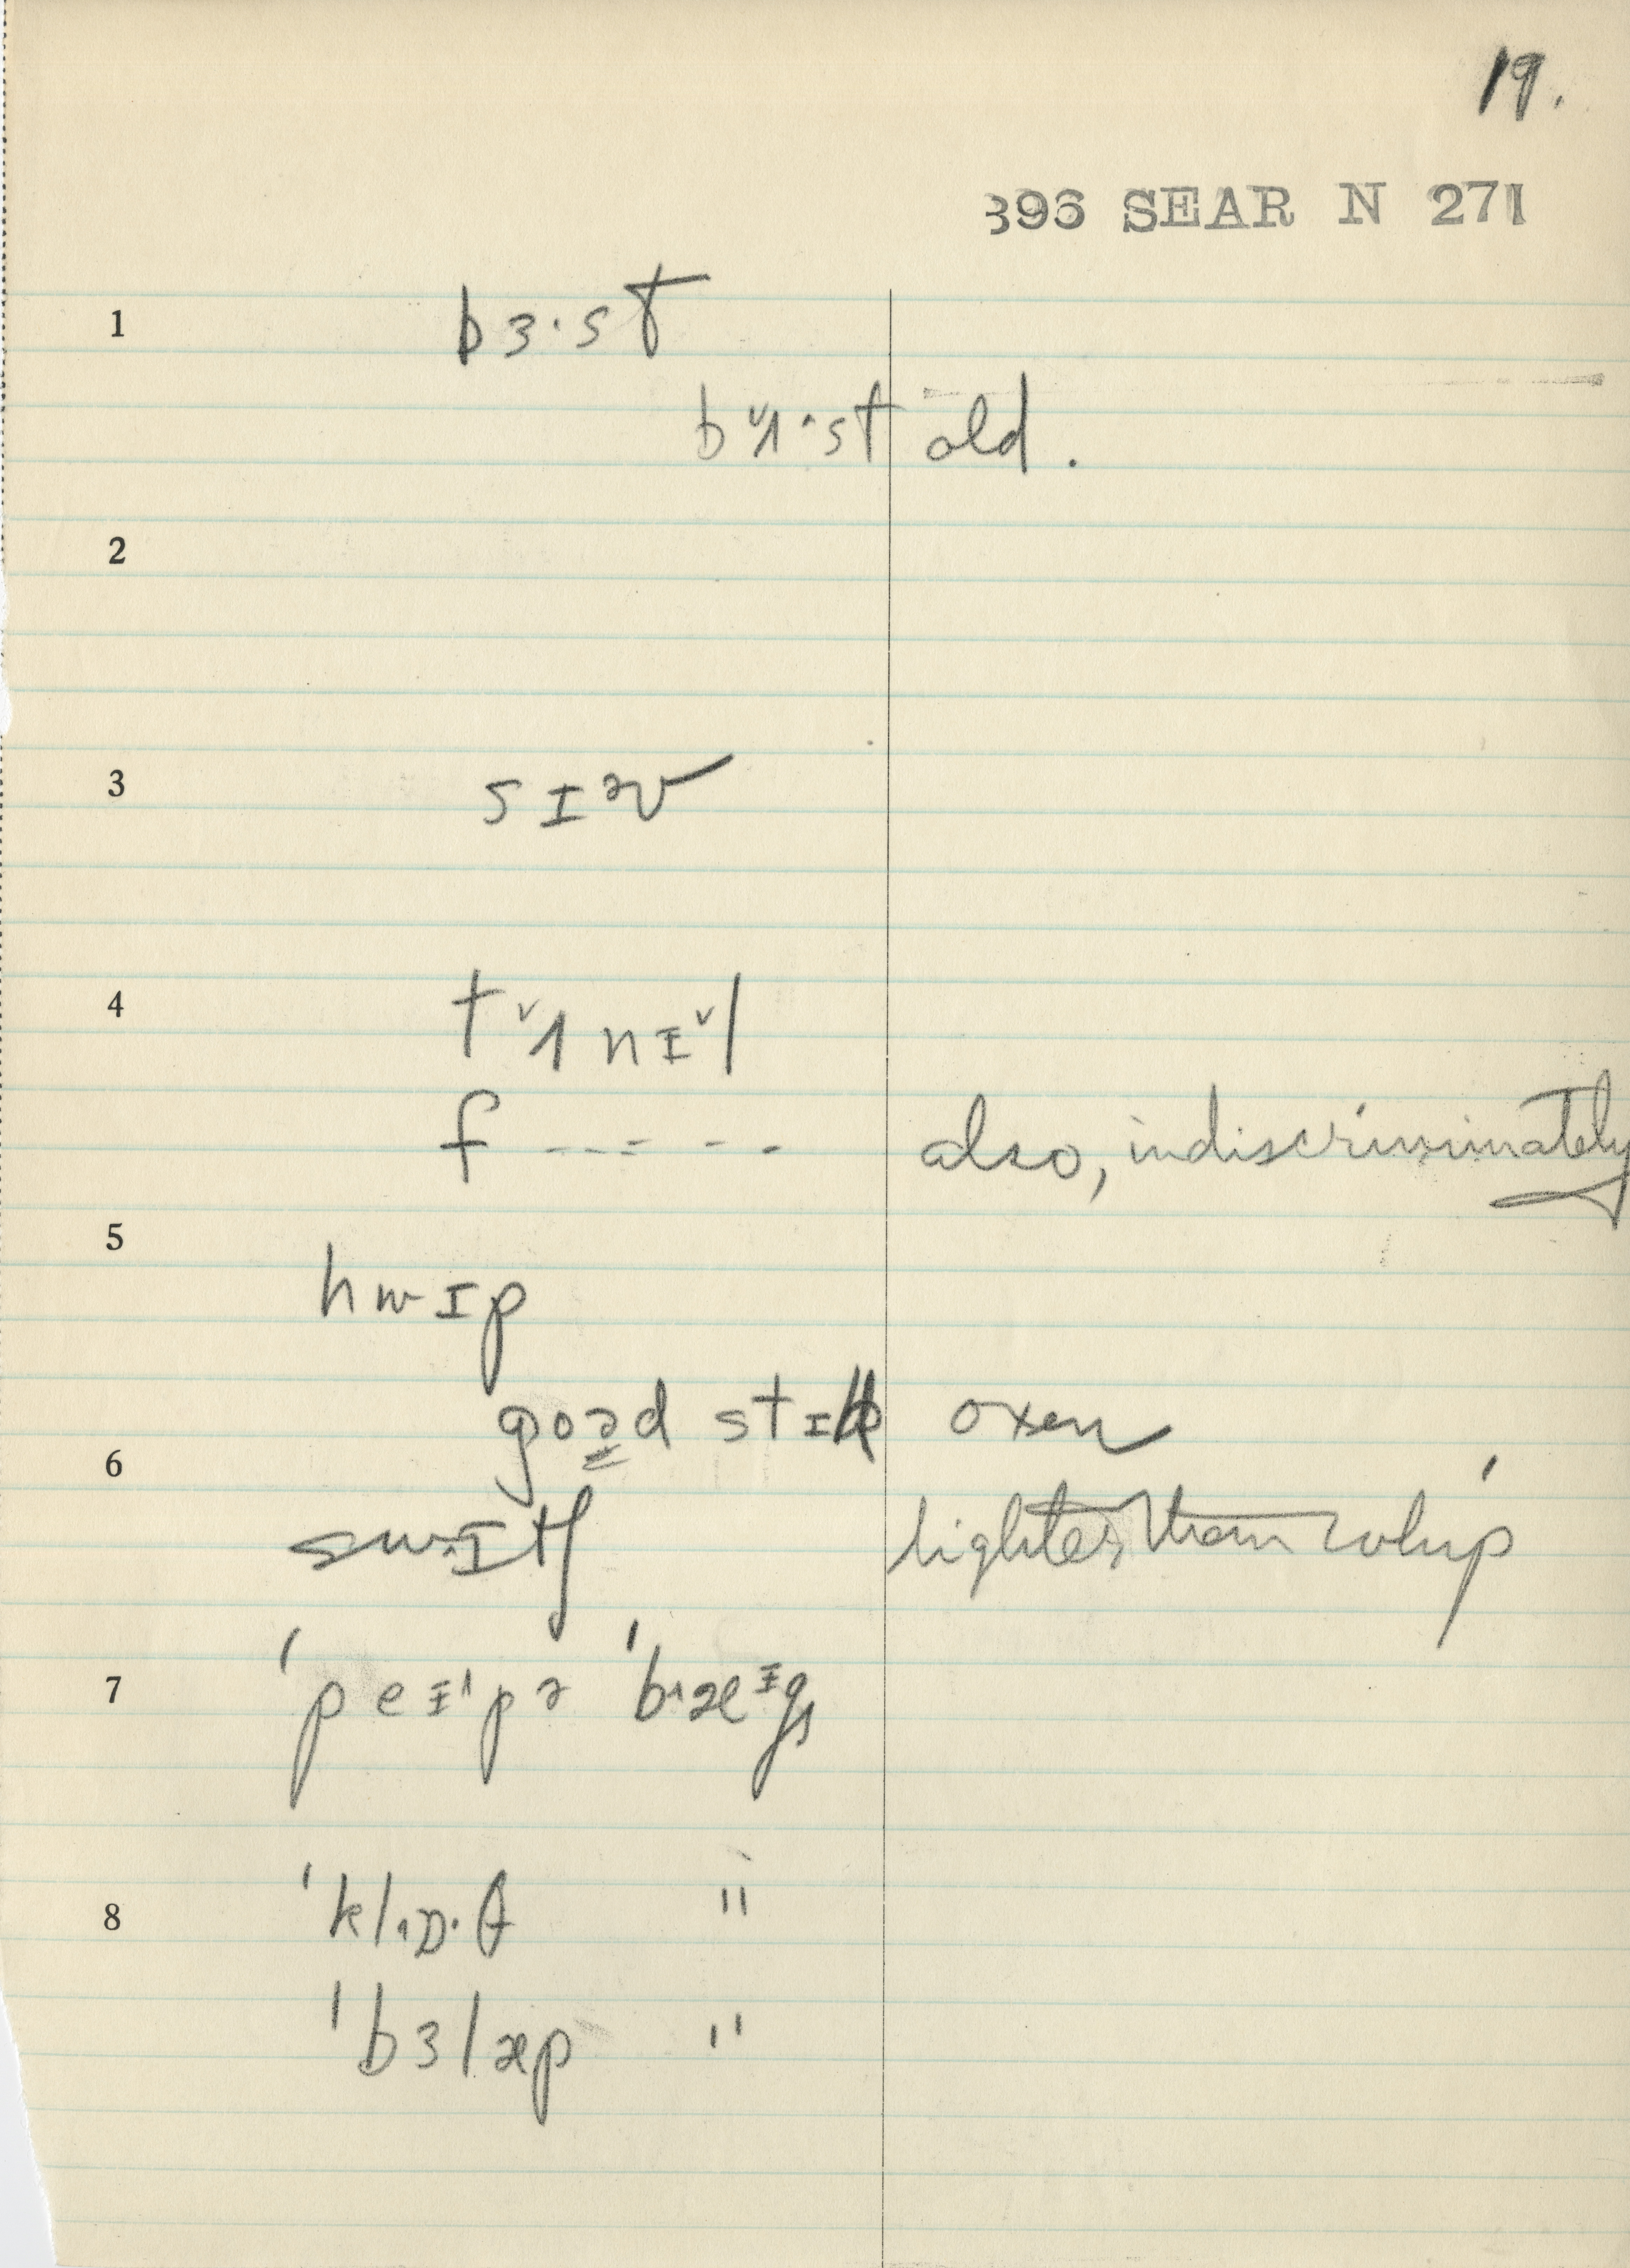 19.
396 SEAR N 271
1 bɜ·st
b^ʌ·st old.
2
3 sɪəv
4 t^ʌnɪ^l
f - - - - - also, indiscriminately
5
hwɪp
goəd stɪk oxen
6
swɪtʃ lighter than whip
7 'peɪ'pə 'bæɪgs
8 'klɒ·θ "
'bɜlæp "